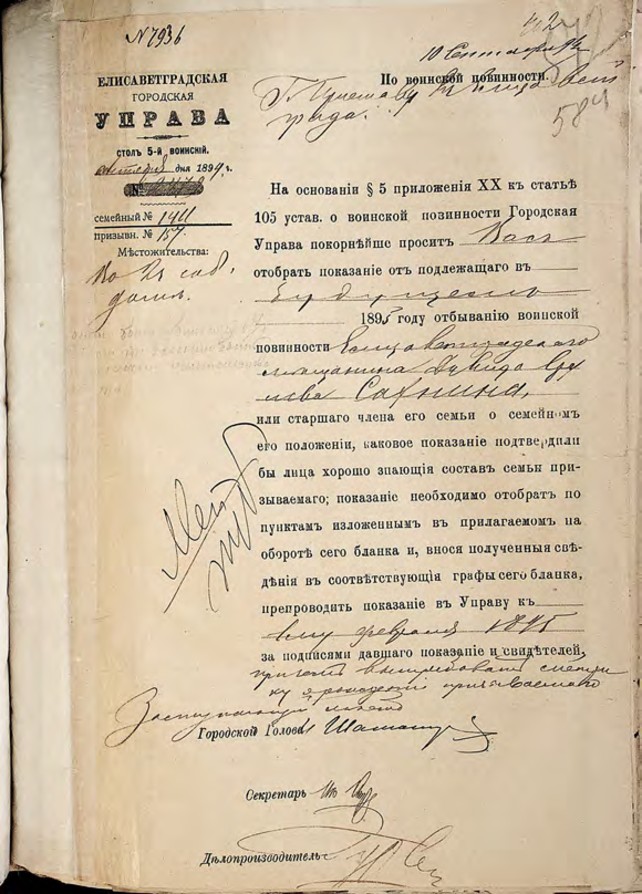 N 7936
ЕЛИСАВЕТГРАДСКАЯ
ГОРОДСКАЯ
УПРАВА
СТОЛЪ 5-й ВОИНСКІЙ.
дня 1894 г.
семейный № 1411
призывн. № 157
Мѣстожительства:
42
10 Сентября
По воинской повинности.
Г. Приставу
града.
584
На основаніи § 5 приложенія XX къ статьѣ
105 устав. о воинской повинности Городская
Управа покорнѣйше проситъ Васъ
отобрать показаніе отъ подлежащаго въ
будущемъ
1895 году отбыванію воинской
повинности Елисаветградскаго
мѣщанина Давида
Сахнина,
или старшаго члена его семьи о семейномъ
его положеніи, каковое показаніе подтвердили
бы лица хорошо знающія составъ семьи при-
зываемаго; показаніе необходимо отобрать по
пунктамъ изложеннымъ въ прилагаемомъ на
оборотѣ сего бланка и, внося полученныя свѣ-
дѣнія въ соотвѣтствующія графы сего бланка,
препроводить показаніе въ Управу къ
1му февраля 1895
за подписями давшаго показаніе и свидѣтелей,
причемъ вытребовать метри-
ку о рожденіи призываемаго
Заступающій мѣсто
Городской Головы
Секретарь
Дѣлопроизводитель